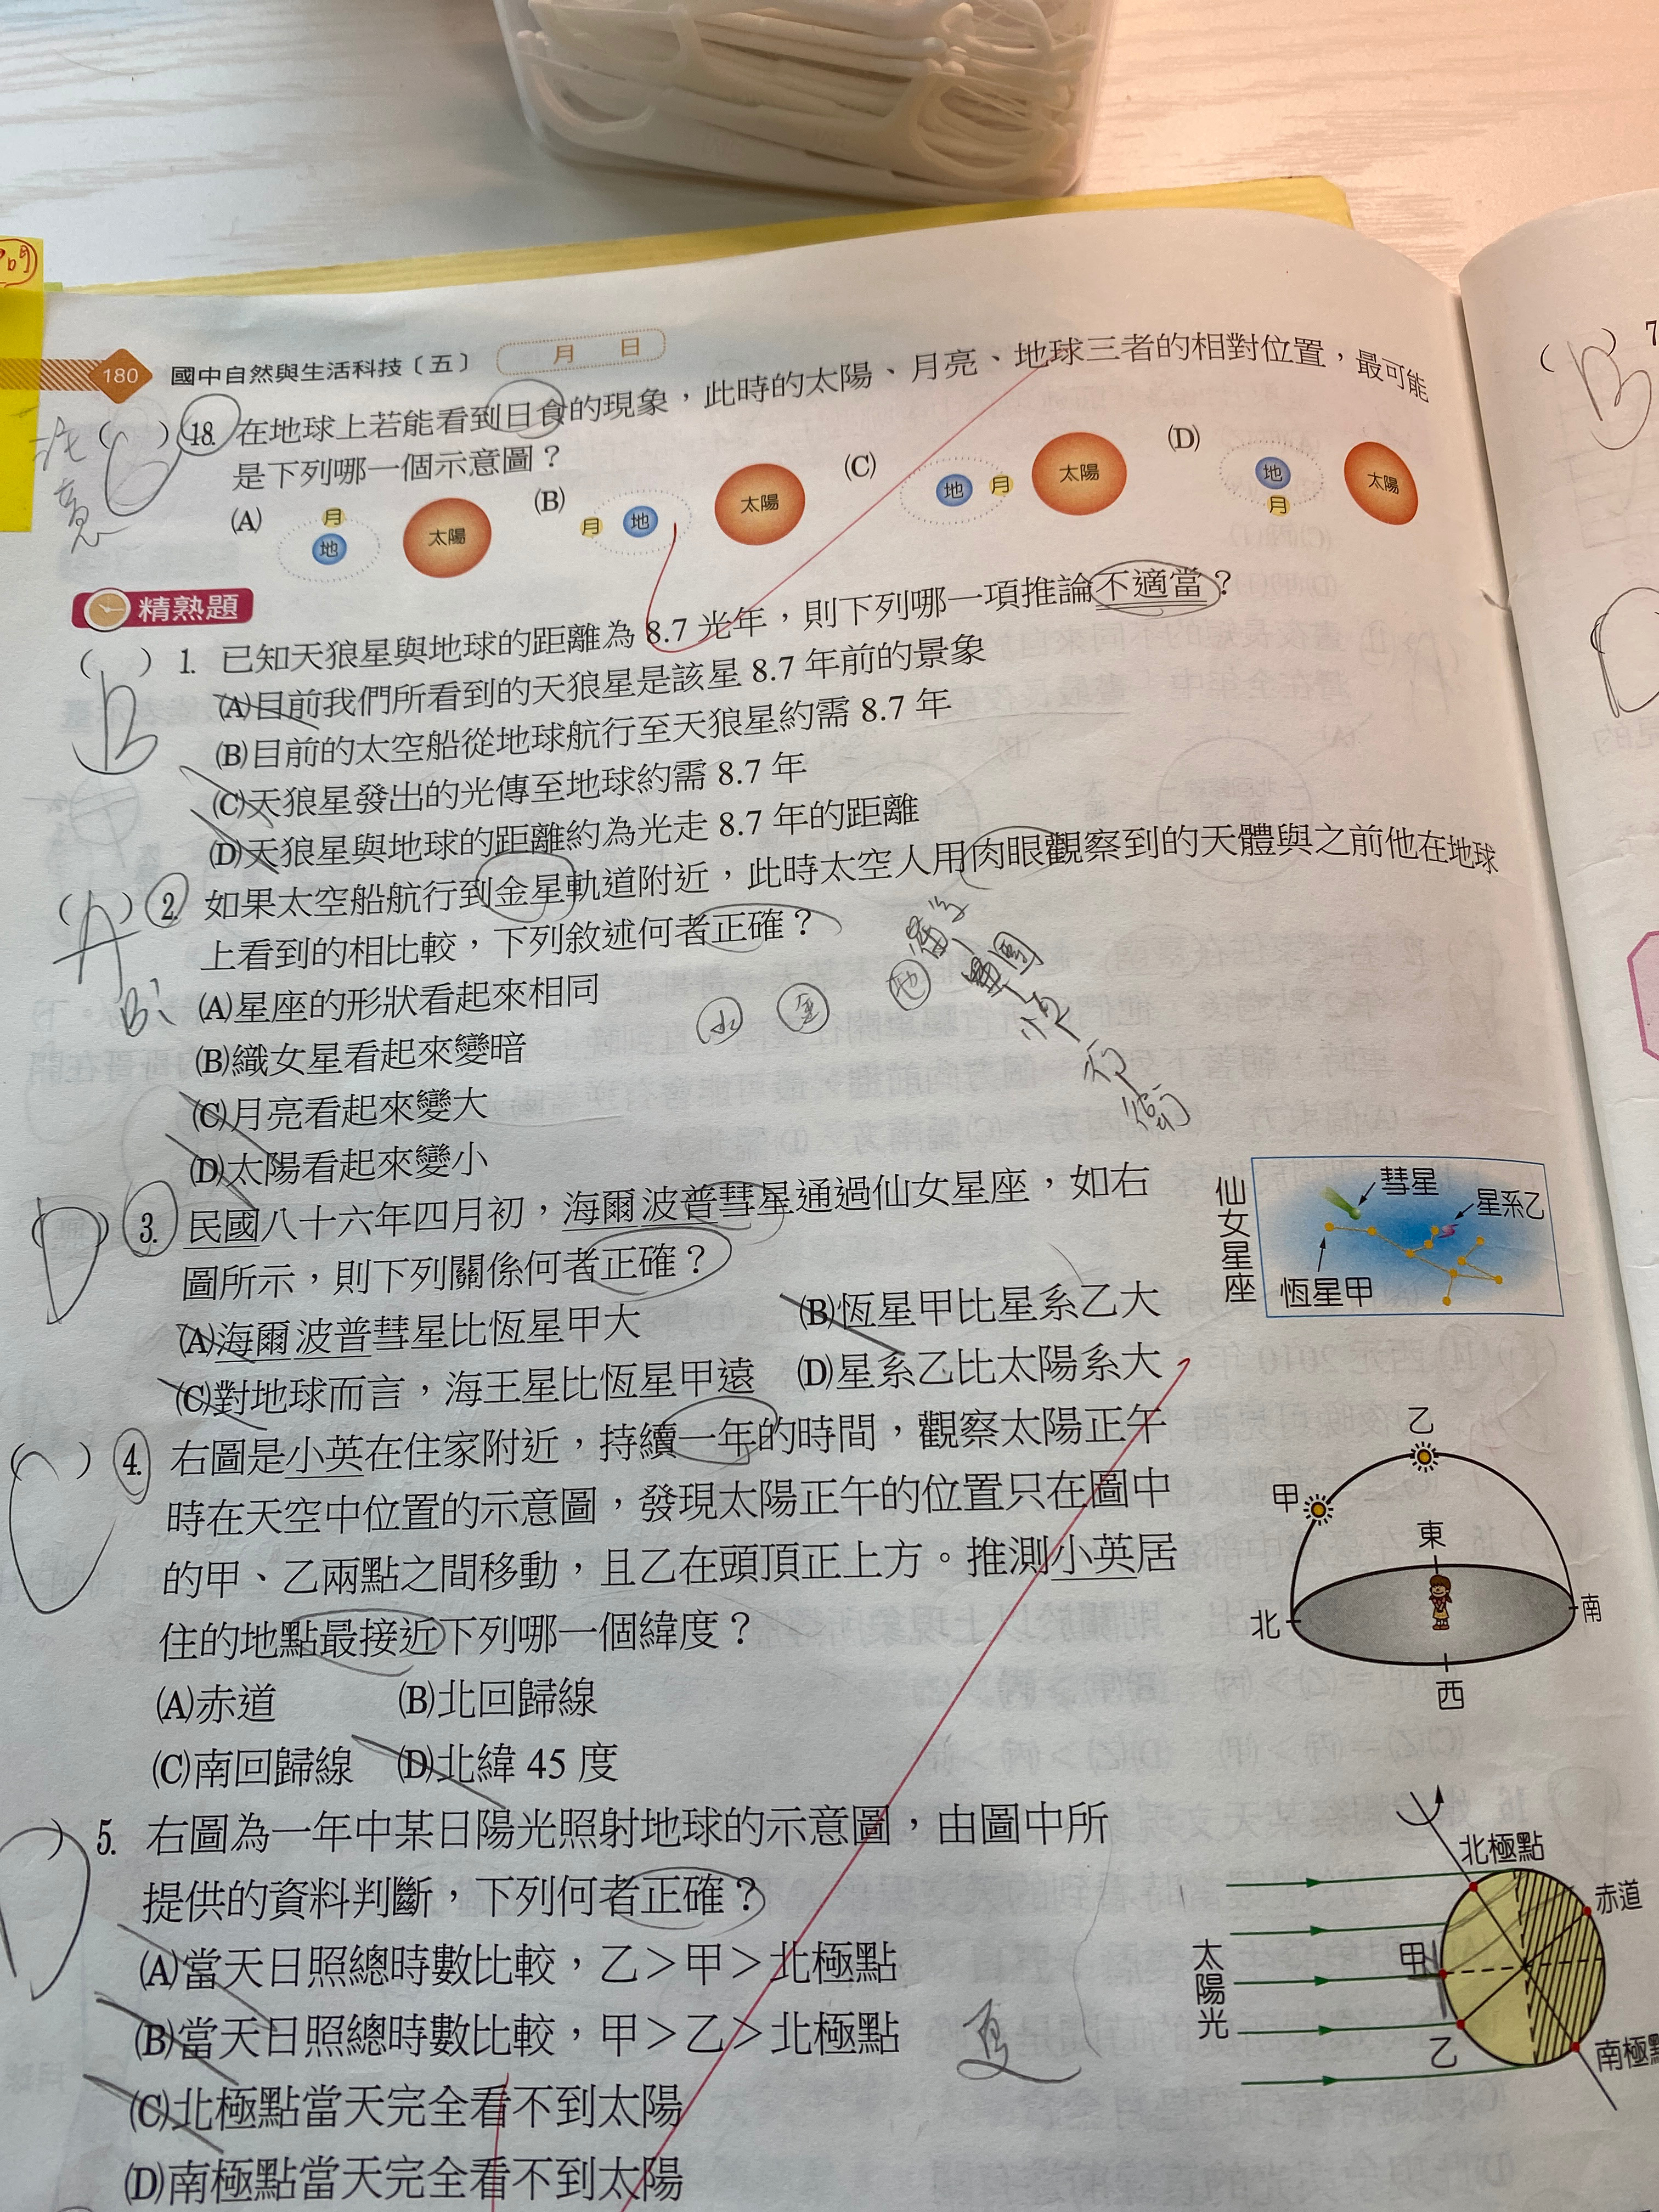 180 國中自然與生活科技〔五〕 月 日
注意
( C ) 18. 在地球上若能看到日食的現象，此時的太陽、月亮、地球三者的相對位置，最可能
是下列哪一個示意圖？
(A) 月 地 太陽 (B) 月 地 太陽 (C) 地 月 太陽 (D) 地 月 太陽
精熟題
( B ) 1. 已知天狼星與地球的距離為 8.7 光年，則下列哪一項推論不適當？
(A)目前我們所看到的天狼星是該星 8.7 年前的景象
(B)目前的太空船從地球航行至天狼星約需 8.7 年
(C)天狼星發出的光傳至地球約需 8.7 年
(D)天狼星與地球的距離約為光走 8.7 年的距離
( A ) 2. 如果太空船航行到金星軌道附近，此時太空人用肉眼觀察到的天體與之前他在地球
上看到的相比較，下列敘述何者正確？
(A)星座的形狀看起來相同
(B)織女星看起來變暗
(C)月亮看起來變大
(D)太陽看起來變小
水 金 地
( D ) 3. 民國八十六年四月初，海爾波普彗星通過仙女星座，如右
圖所示，則下列關係何者正確？
(A)海爾波普彗星比恆星甲大 (B)恆星甲比星系乙大
(C)對地球而言，海王星比恆星甲遠 (D)星系乙比太陽系大
仙女星座
彗星
星系乙
恆星甲
( C ) 4. 右圖是小英在住家附近，持續一年的時間，觀察太陽正午
時在天空中位置的示意圖，發現太陽正午的位置只在圖中
的甲、乙兩點之間移動，且乙在頭頂正上方。推測小英居
住的地點最接近下列哪一個緯度？
(A)赤道 (B)北回歸線
(C)南回歸線 (D)北緯 45 度
乙
甲
東
北
南
西
D ) 5. 右圖為一年中某日陽光照射地球的示意圖，由圖中所
提供的資料判斷，下列何者正確？
(A)當天日照總時數比較，乙＞甲＞北極點
(B)當天日照總時數比較，甲＞乙＞北極點
(C)北極點當天完全看不到太陽
(D)南極點當天完全看不到太陽
夏
北極點
赤道
太陽光
甲
乙
南極點
( B ) 7